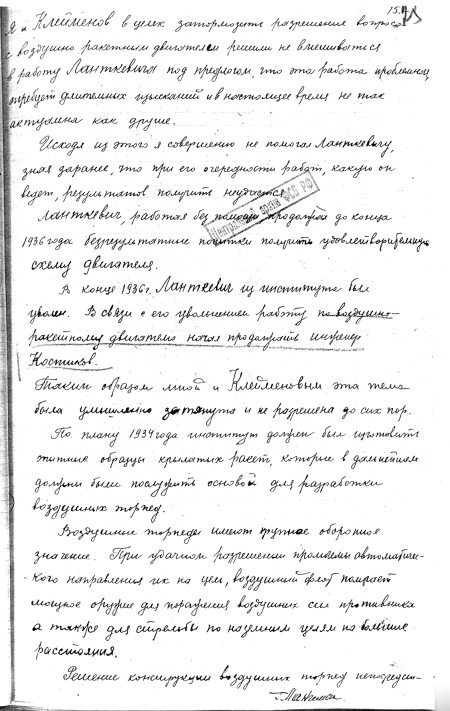 15.
Я и Клейменов в целях затормозить разрешение вопроса
с воздушно ракетным двигателем решили не вмешиваться
в работу Ланткевича под предлогом, что эта работа проблемная,
требует длительных изысканий и в настоящее время не так
актуальна как другие.
Исходя из этого я совершенно не помогал Ланткевичу,
зная заранее, что при его очередности работ, какую он
ведет, результатов получить неудастся.
Центральный архив ФСБ РФ
Ланткевич, работая без помощи продолжал до конца
1936 года безрезультатные попытки получить удовлетворительную
схему двигателя.
В конце 1936 г. Ланткевич из института был
уволен. В связи с его увольнением работу по воздушно-
ракетному двигателю начал продолжать инженер
Костиков.
Таким образом мной и Клейменовым эта тема
была умышленно затянута и не разрешена до сих пор.
По плану 1937 года институт должен был изготовить
опытные образцы крылатых ракет, которые в дальнейшем
должны были послужить основой для разработки
воздушных торпед.
Воздушные торпеды имеют крупное оборонное
значение. При удачном разрешении проблемы автоматиче-
кого направления их на цель, воздушный флот получает
мощное оружие для поражения воздушных сил противника
а также для стрельбы по наземным целям на большие
расстояния.
Решение конструкции воздушных торпед непосредст-